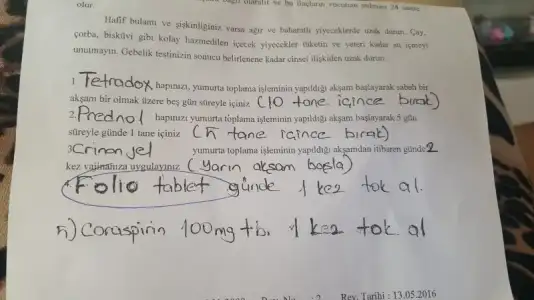 olur.
Hafif bulantı ve şişkinliğiniz varsa ağır ve baharatlı yiyeceklerde uzak durun. Çay,
çorba, bisküvi gibi kolay hazmedilen içecek yiyecekler tüketin ve yeteri kadar su içmeyi
unutmayın. Gebelik testinizin sonucu belirlenene kadar cinsel ilişkiden uzak durun.
1. Tetradox hapınızı, yumurta toplama işleminin yapıldığı akşam başlayarak sabah bir
akşam bir olmak üzere beş gün süreyle içiniz (10 tane içince bırak)
2. Prednol hapınızı yumurta toplama işleminin yapıldığı akşam başlayarak 5 gün
süreyle günde 1 tane içiniz (5 tane içince bırak)
3 Crinon jel yumurta toplama işleminin yapıldığı akşamdan itibaren günde 2
kez vajinanıza uygulayınız (yarın akşam başla)
4 Folio tablet günde 1 kez tok al.
5) Coraspirin 100mg tb. 1 kez tok al
Rev. Tarihi : 13.05.2016